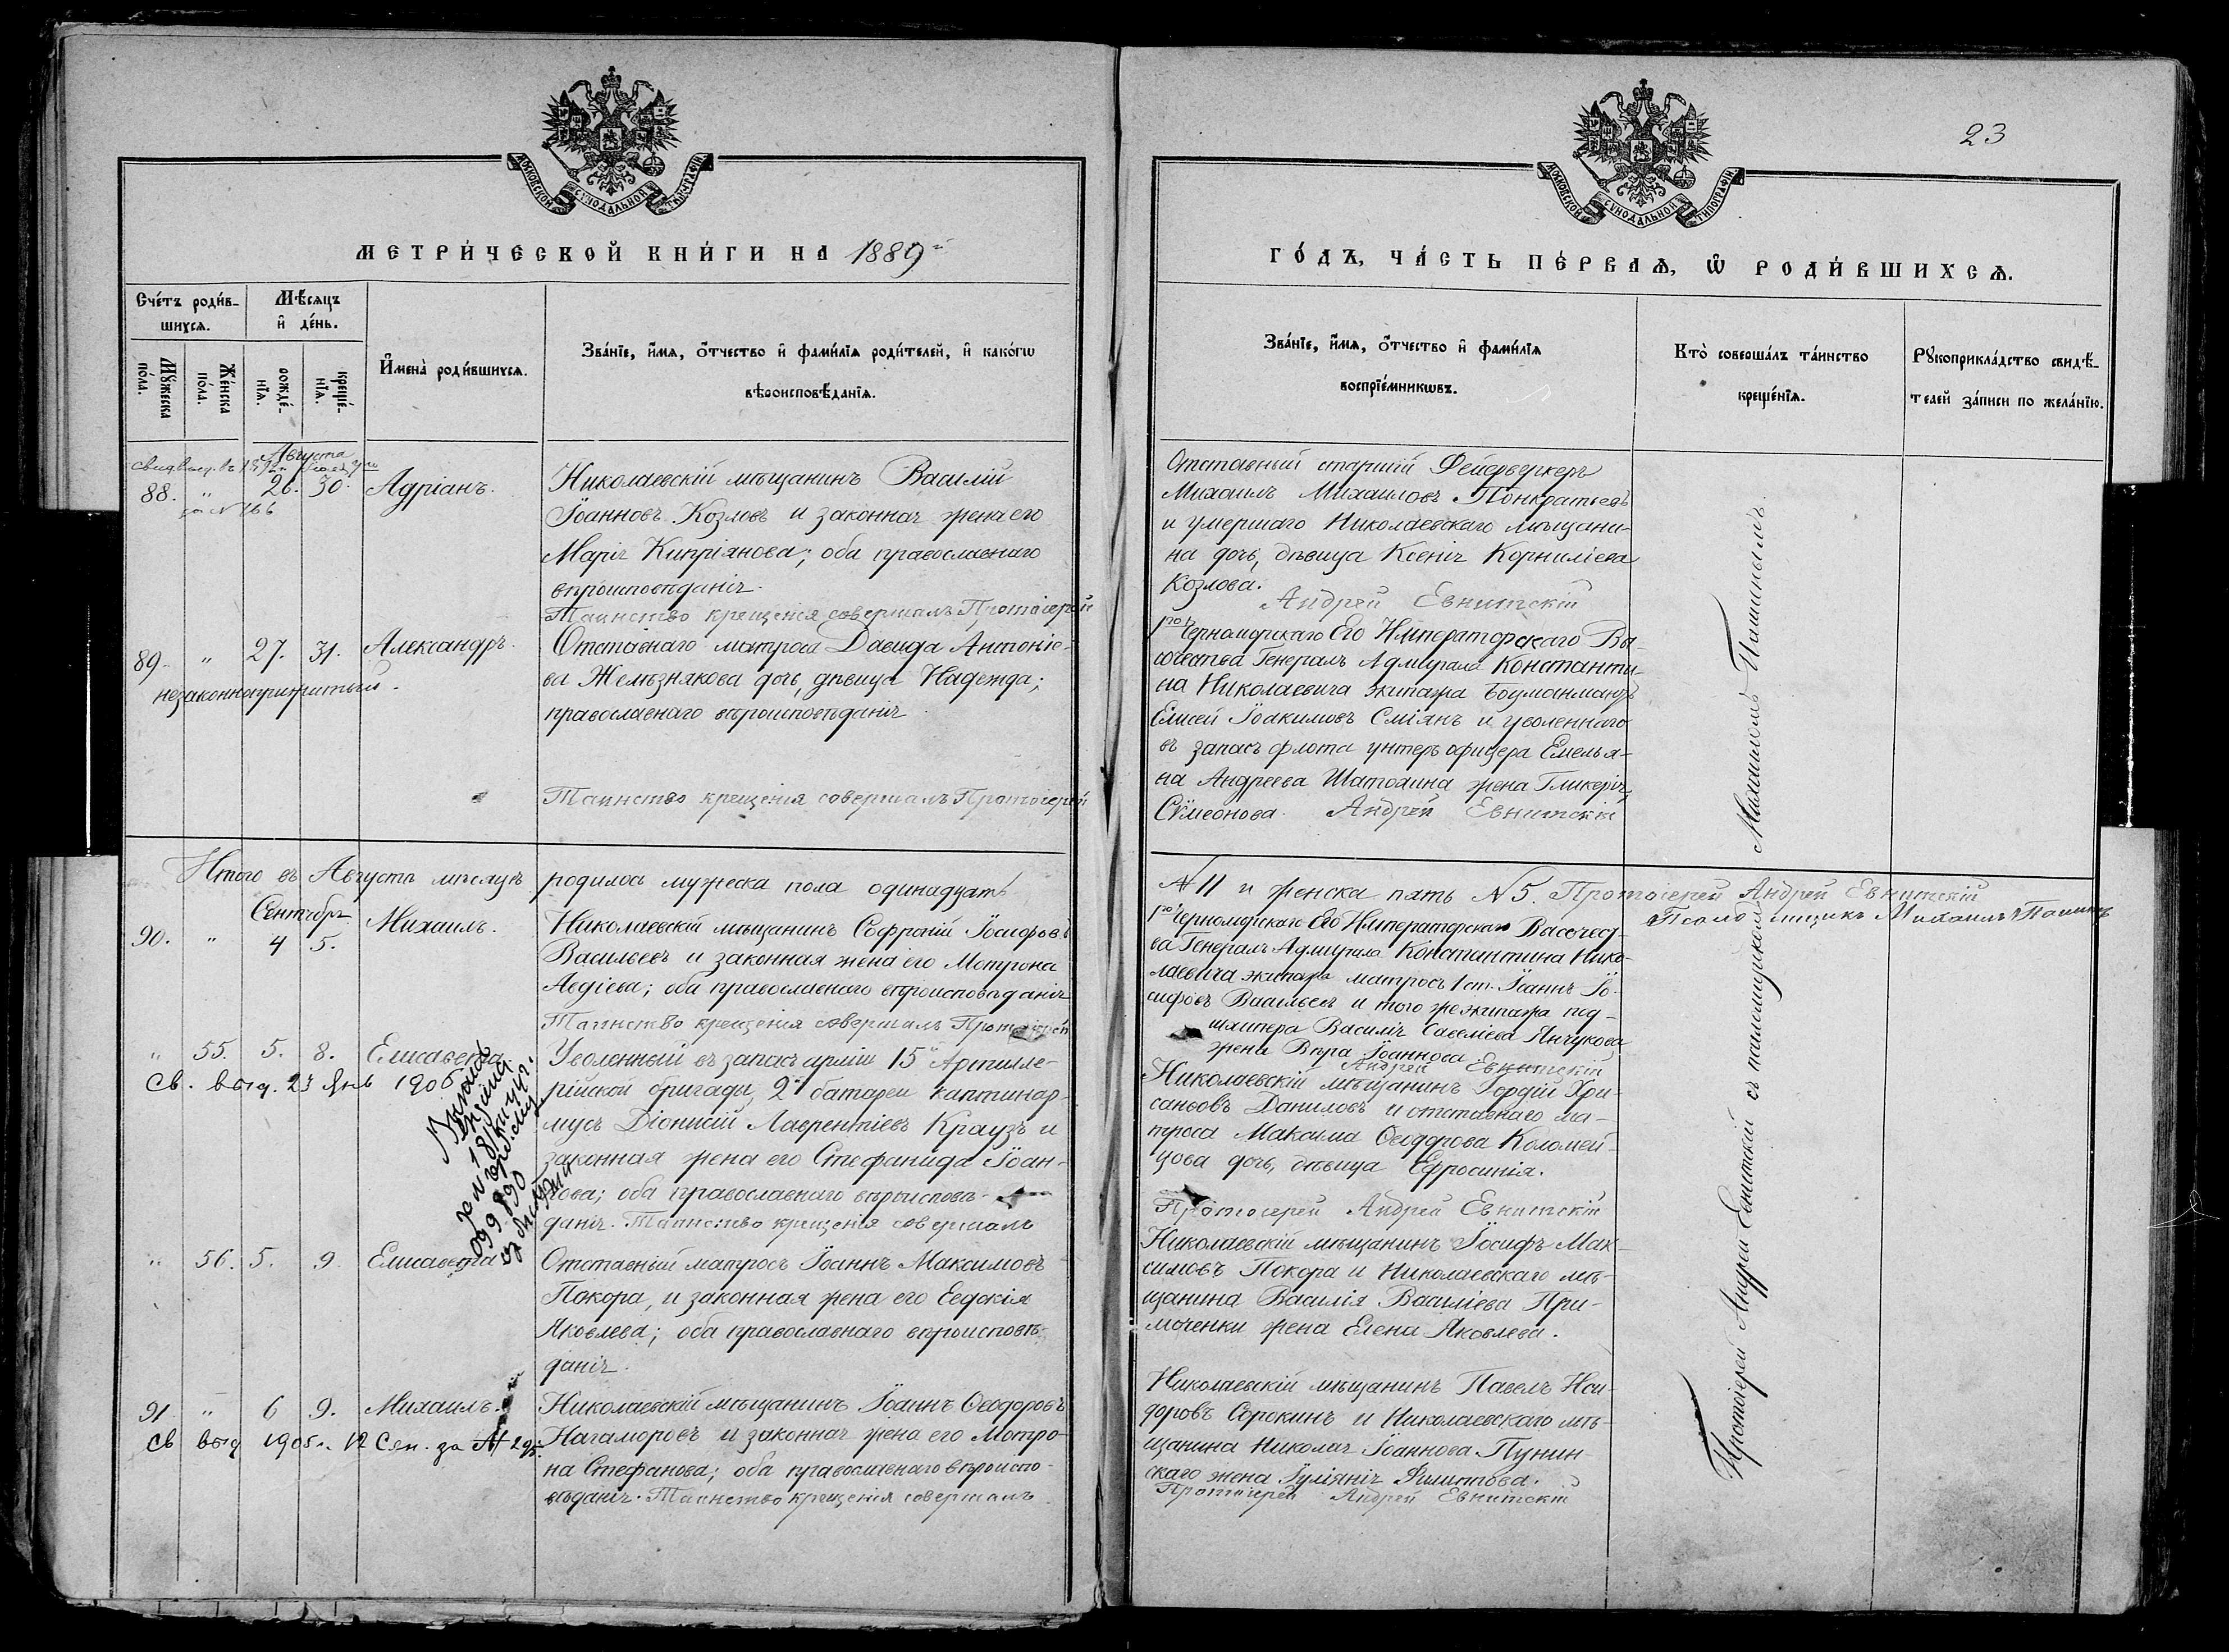 МОСКОВСКОЙ СѴНОДАЛЬНОЙ ТИПОГРАФІИ
МЕТРИЧЕСКОЙ КНИГИ НА 1889й
Счетъ родившихся.
Мѣсяцъ и день.
Имена родившихся.
Званіе, имя, отчество и фамилія родителей, и какогѡ
вѣроисповѣданія.
Мужеска пола.
Женска пола.
рожденія.
крещенія.
Августа
88. " 26. 30. Адріанъ.
за № 166
Николаевскій мѣщанинъ Василій
Іоанновъ Козловъ и законная жена его
Марія Кипріянова; оба православнаго
вѣроисповѣданія.
Таинство крещенія совершалъ Протоіерей
89. " 27. 31. Александръ.
незаконноприжитый.
Отставнаго матроса Давида Антоніе-
ва Желѣзнякова дочь, дѣвица Надежда;
православнаго вѣроисповѣданія
Таинство крещенія совершалъ Протоіерей
Итого въ Августѣ мѣсяцѣ родилось мужеска пола одинадцать
Сентябрь
90. " 4 5. Михаилъ.
Николаевскій мѣщанинъ Софроній Іосифовъ
Васильевъ и законная жена его Мотрона
Авдіева; оба православнаго вѣроисповѣданія
Таинство крещенія совершалъ Протоіерей
" 55. 5. 8. Елисавета
Св. выд. 23 Янв 1906
Уволенный въ запасъ арміи 15й Артилле-
рійской бригады, 2й батареи каптинар-
мусъ Діонисій Лаврентіевъ Краузъ и
законная жена его Стефанида Іоан-
нова; оба православнаго вѣроисповѣ-
данія. Таинство крещенія совершалъ
" 56. 5. 9. Елисавета
Отставный матросъ Іоаннъ Максимовъ
Покора, и законная жена его Евдокія
Яковлева; оба православнаго вѣроисповѣ-
данія.
91 " 6 9. Михаилъ.
Св выд 1905 г. 12 Сен. за № 295.
Николаевскій мѣщанинъ Іоаннъ Ѳеодоровъ
Нагаморовъ и законная жена его Мотро-
на Стефанова; оба православнаго вѣроиспо-
вѣданія. Таинство крещенія совершалъ
23
МОСКОВСКОЙ СѴНОДАЛЬНОЙ ТИПОГРАФІИ
ГОДЪ, ЧАСТЬ ПЕРВАЯ, Ѡ РОДИВШИХСЯ.
Званіе, имя, отчество и фамилія
воспріемникѡвъ.
Кто совершалъ таинство
крещенія.
Рукоприкладство свидѣ-
телей записи по желанію.
Отставный старшій Фейерверкеръ
Михаилъ Михаиловъ Понкратьевъ
и умершаго Николаевскаго мѣщани-
на дочь, дѣвица Ксенія Корниліева
Козлова.
Андрей Евнитскій
1го Черноморскаго Его Императорскаго Вы-
сочества Генералъ Адмирала Константи-
на Николаевича экипажа Боцманматъ
Елисей Іоакимовъ Сміянъ и уволеннаго
въ запасъ флота унтеръ офицера Емелья-
на Андреева Шатохина жена Гликерія
Сѵмеонова. Андрей Евнитскій
№ 11 и женска пять № 5. Протоіерей Андрей Евнитскій
Псаломщикъ Михаилъ Пашинъ
1го Черноморскаго Его Императорскаго Высочест-
ва Генералъ Адмирала Константина Нико-
лаевича экипажа матросъ 1 ст. Іоаннъ Іо-
сифовъ Васильевъ и того же экипажа под-
шкипера Василія Савеліева Янчукова
жена Вѣра Іоаннова.
Андрей Евнитскій
Николаевскій мѣщанинъ Гордій Хри-
саньовъ Даниловъ и отставнаго ма-
троса Максима Ѳеодорова Коломей-
цова дочь, дѣвица Ефросинія.
Протоіерей Андрей Евнитскій
Николаевскій мѣщанинъ Іосифъ Мак-
симовъ Покора и Николаевскаго мѣ-
щанина Василія Василіева При-
моченки жена Елена Яковлева.
Николаевскій мѣщанинъ Павелъ Иси-
доровъ Сорокинъ и Николаевскаго мѣ-
щанина Николая Іоаннова Пунин-
скаго жена Іуліянія Филиппова.
Протоіерей Андрей Евнитскій
Протоіерей Андрей Евнитскій съ псаломщикомъ Михаиломъ Пашинымъ